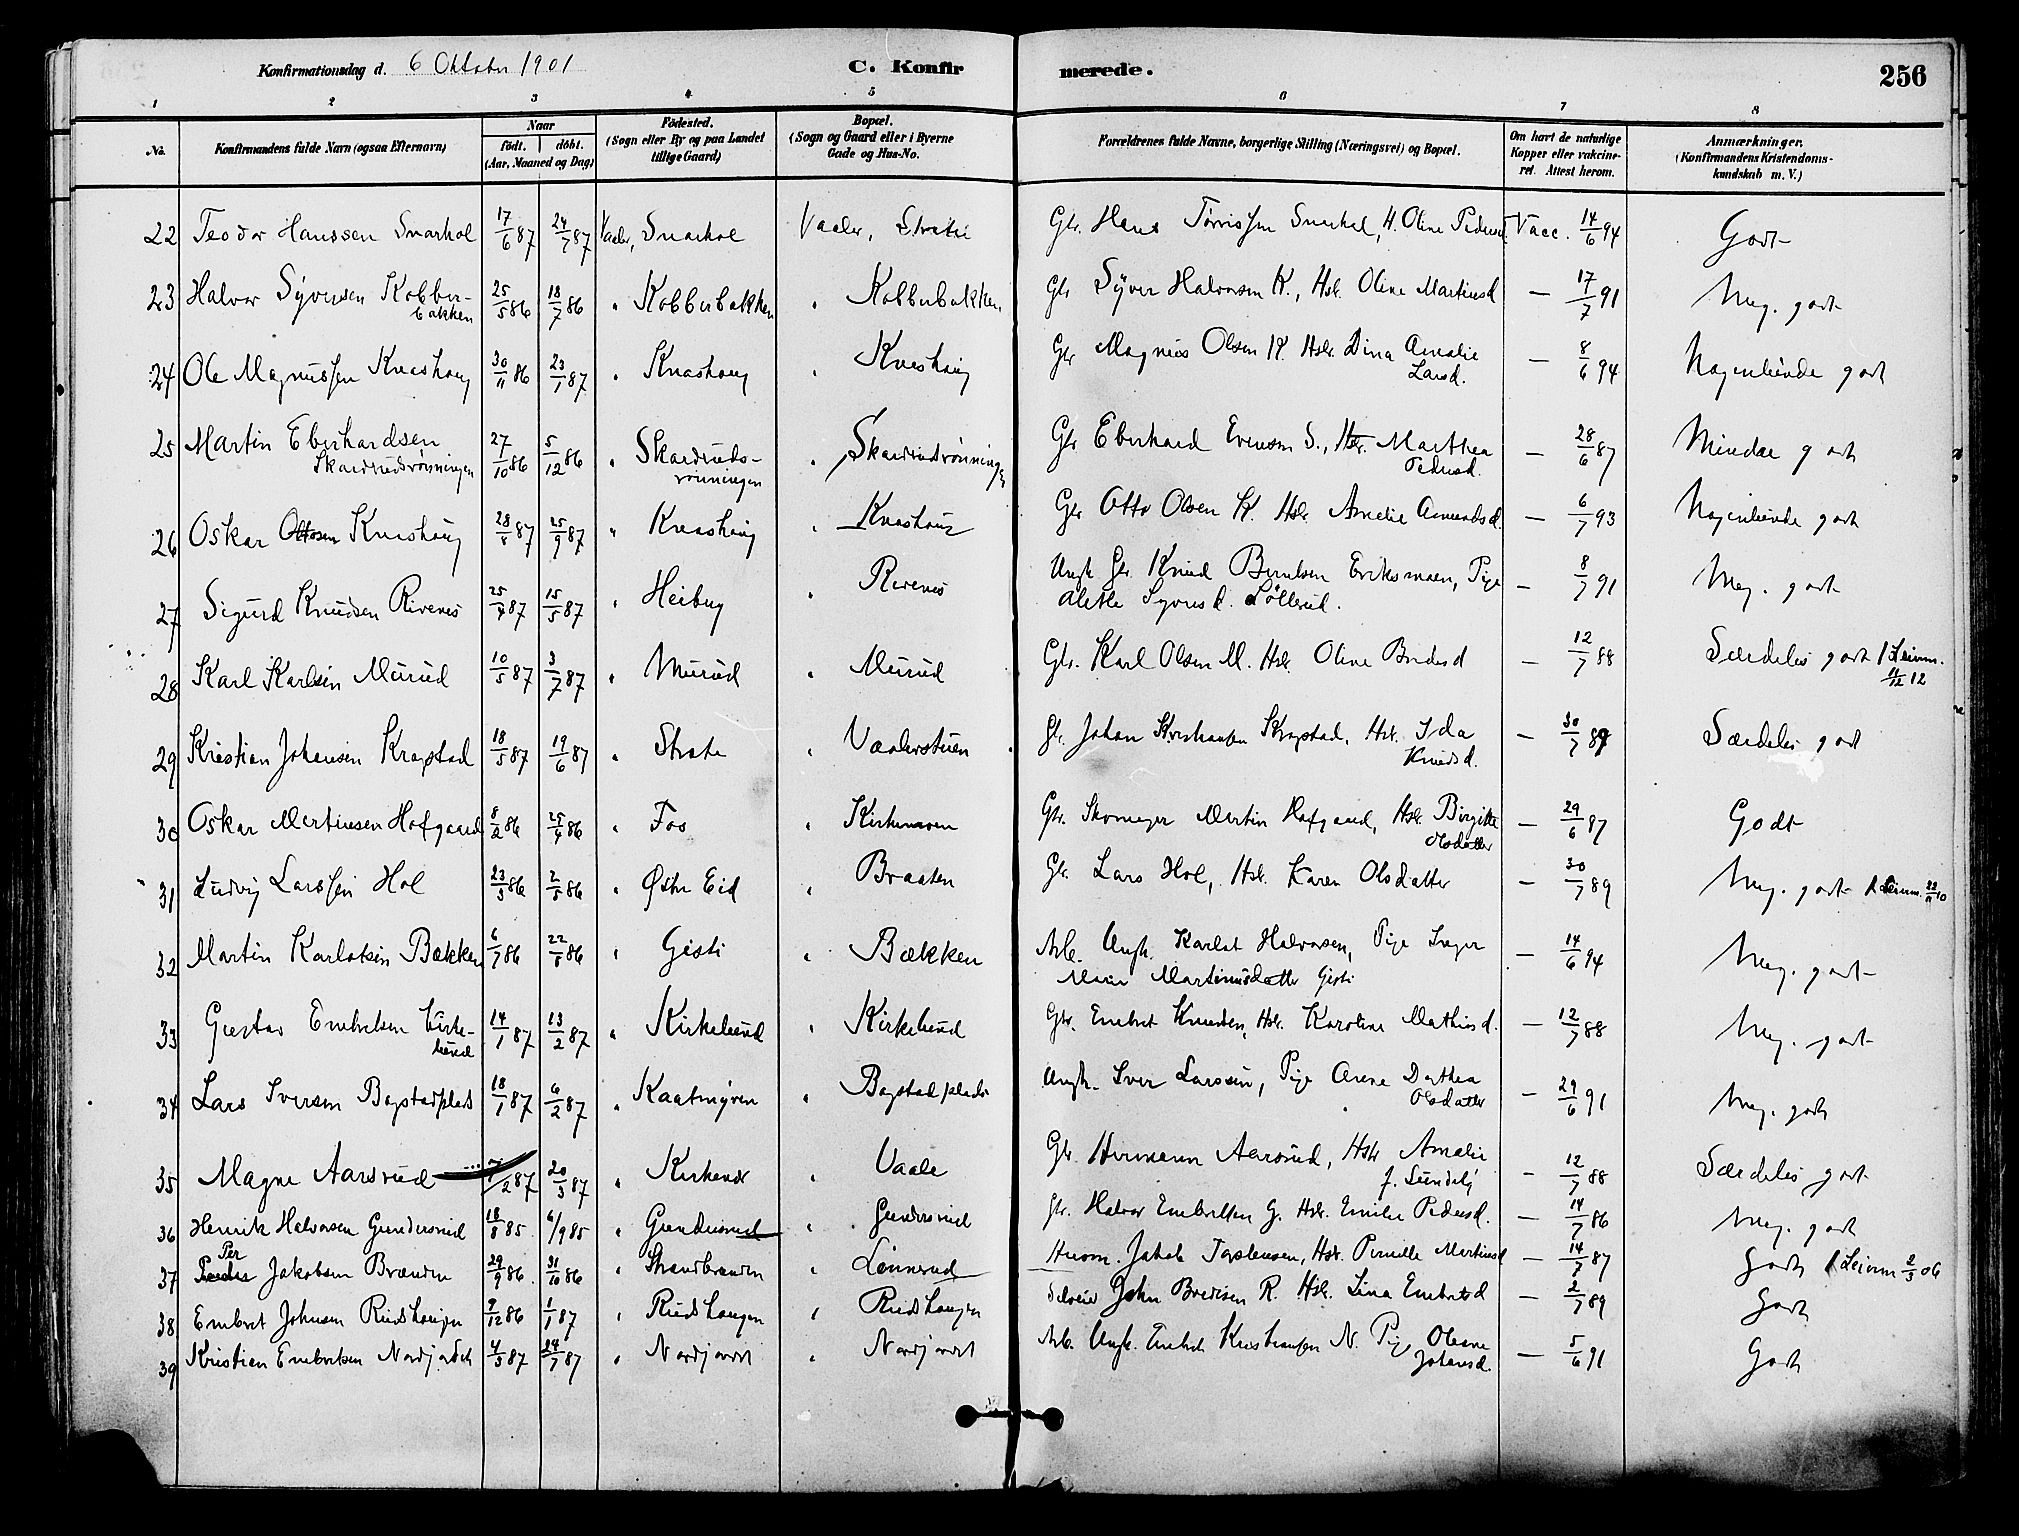 Konfirmationsdag d. 6 Oktober 1901 C. Konfirmerede. 256
1 2 3 4 5 6 7 8
No. Konfirmandens fulde Navn (ogsaa Efternavn) Naar födt. döbt. (Aar, Maaned og Dag) Födested. (Sogn eller By og paa Landet tillige Gaard) Bopæl. (Sogn og Gaard eller i Byerne Gade og Hus-No. Forældrenes fulde Navne, borgerlige Stilling (Næringsvei) og Bopæl. Om havt de naturlige Kopper eller vakcineret. Attest herom. Anmærkninger. (Konfirmandens Kristendomskundskab m. V.)
22 Teodor Hanssen Snarhol 17/6 87 24/7 87 Vaaler, Snarhol Vaaler, Strate Gbr. Hans Tørrissen Snarhol, H. Oline Pedersd. Vacc. 14/6 94 Godt
23 Halvor Syversen Kobberbakken 25/5 86 18/7 86 " Kobberbakken " Kobberbakken Gbr Syver Halvorsen K., Hstr. Oline Martinsd — 17/7 91 Meg. godt
24 Ole Magnussen Knashaug 30/11 86 23/1 87 " Knashaug " Knashaug Gbr Magnus Olsen K. Hstr. Dina Amalie Larsd. — 8/6 94 Nogenlunde godt
25 Martin Eberhardsen Skardrudsrønningen 27/10 86 5/12 86 " Skardrudsrønningen " Skardrudsrønningen Gbr Eberhard Evensen S., Hstr. Marthea Pedersd. — 28/6 87 Mindre godt
26 Oskar Ottosen Knashaug 28/8 87 25/9 87 " Knashaug " Knashaug Gbr Otto Olsen K. Hstr. Amalie Amundsd. — 6/7 93 Nogenlunde godt
27 Sigurd Knudsen Rivenes 25/4 87 15/5 87 " Heiberg " Revenes Ungk. Gbr. Knud Berntsen Eriksmoen, Pige Alette Syversd. Løllerud. — 8/7 91 Meg. godt
28 Karl Karlsen Murud 10/5 87 3/7 87 " Murud " Murud Gbr. Karl Olsen M. Hstr. Oline Bredesd — 12/7 88 Særdeles godt 11/12 12
29 Kristian Johansen Kragstad 18/5 87 19/6 87 " Strate " Vaalerstuen Gbr. Johan Kristiansen Kragstad, Hstr. Ida Knudsd. — 30/7 89 Særdeles godt
30 Oskar Martinsen Hofgaard 8/2 86 25/4 86 " Fos " Kirkemoen Gbr. Skomager Martin Hofgaard, Hstr. Birgitte Olsdatter — 29/6 87 Godt
31 Ludvig Larssen Hol 23/3 86 2/5 86 " Østre Eid " Braaten Gbr. Lars Hol, Hstr. Karen Olsdatter — 30/7 89 Meg. godt 22/11 10
32 Martin Karlotsen Bækken 6/7 86 22/8 86 " Gisti " Bækken Arb. Ungk. Karlot Halvorsen, Pige Inger Marie Martinusdatter Gisti — 14/6 94 Meg. godt
33 Gustav Embretsen Kirkelund 14/1 87 13/2 87 " Kirkelund " Kirkelund Gbr. Embret Knudsen, Hstr. Karoline Mathisd. — 12/7 88 Meg. godt
34 Lars Iversen Bogstadplads 18/1 87 6/2 87 " Kaatmyren " Bogstadplads Ungk. Iver Larssen, Pige Arene Dorthea Olsdatter — 29/6 91 Meg. godt
35 Magne Aarsrud /2 87 20/3 87 " Kirkenær " Vaale Gbr. Hermann Aarsrud, Hstr Amalie f. Lundeby — 12/7 88 Særdeles godt
36 Henrik Halvorsen Gundersrud 18/8 85 4/9 85 " Gundersrud " Gundersrud Gbr. Halvor Embretsen G. Hstr. Emilie Pedersd. — 14/7 86 Meg. godt
37 Per Jakobsen Brænden 29/9 86. 31/10 86 " Strandbrænden " Lønnerud Husm. Jakob Torstensen, Hstr. Pernille Martinsd — 14/7 87 Godt 2/3 06
38 Embret Johnsen Rudshaugen 9/12 86 1/1 87 " Rudshaugen " Rudshaugen Selveier John Bredesen R. Hstr. Lina Embretsd — 2/7 89 Godt
39 Kristian Embretsen Nordjordet 4/3 87 24/7 87 " Nordjordet " Nordjordet Arb. Ungk. Embret Kristiansen N. Pige Oleane Johansd. — 5/6 91 Godt